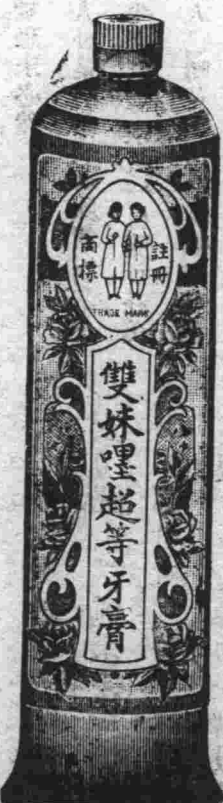 註冊
商標
TRADE MARK
雙妹嚜超等牙膏